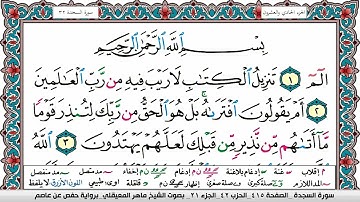 الجزء الحادي والعشرون
سورة السجدة ٣٢
بِسْمِ اللَّهِ الرَّحْمَٰنِ الرَّحِيمِ
الٓمٓ ١ تَنزِيلُ الْكِتَابِ لَا رَيْبَ فِيهِ مِن رَّبِّ الْعَالَمِينَ
٢ أَمْ يَقُولُونَ افْتَرَاهُ ۚ بَلْ هُوَ الْحَقُّ مِن رَّبِّكَ لِتُنذِرَ قَوْمًا
مَّا أَتَاهُم مِّن نَّذِيرٍ مِّن قَبْلِكَ لَعَلَّهُمْ يَهْتَدُونَ ٣ اللَّهُ
سورة السجدة الصفحة ٤١٥ الحزب ٤٢ الجزء ٢١ بصوت الشيخ ماهر المعيقلي برواية حفص عن عاصم